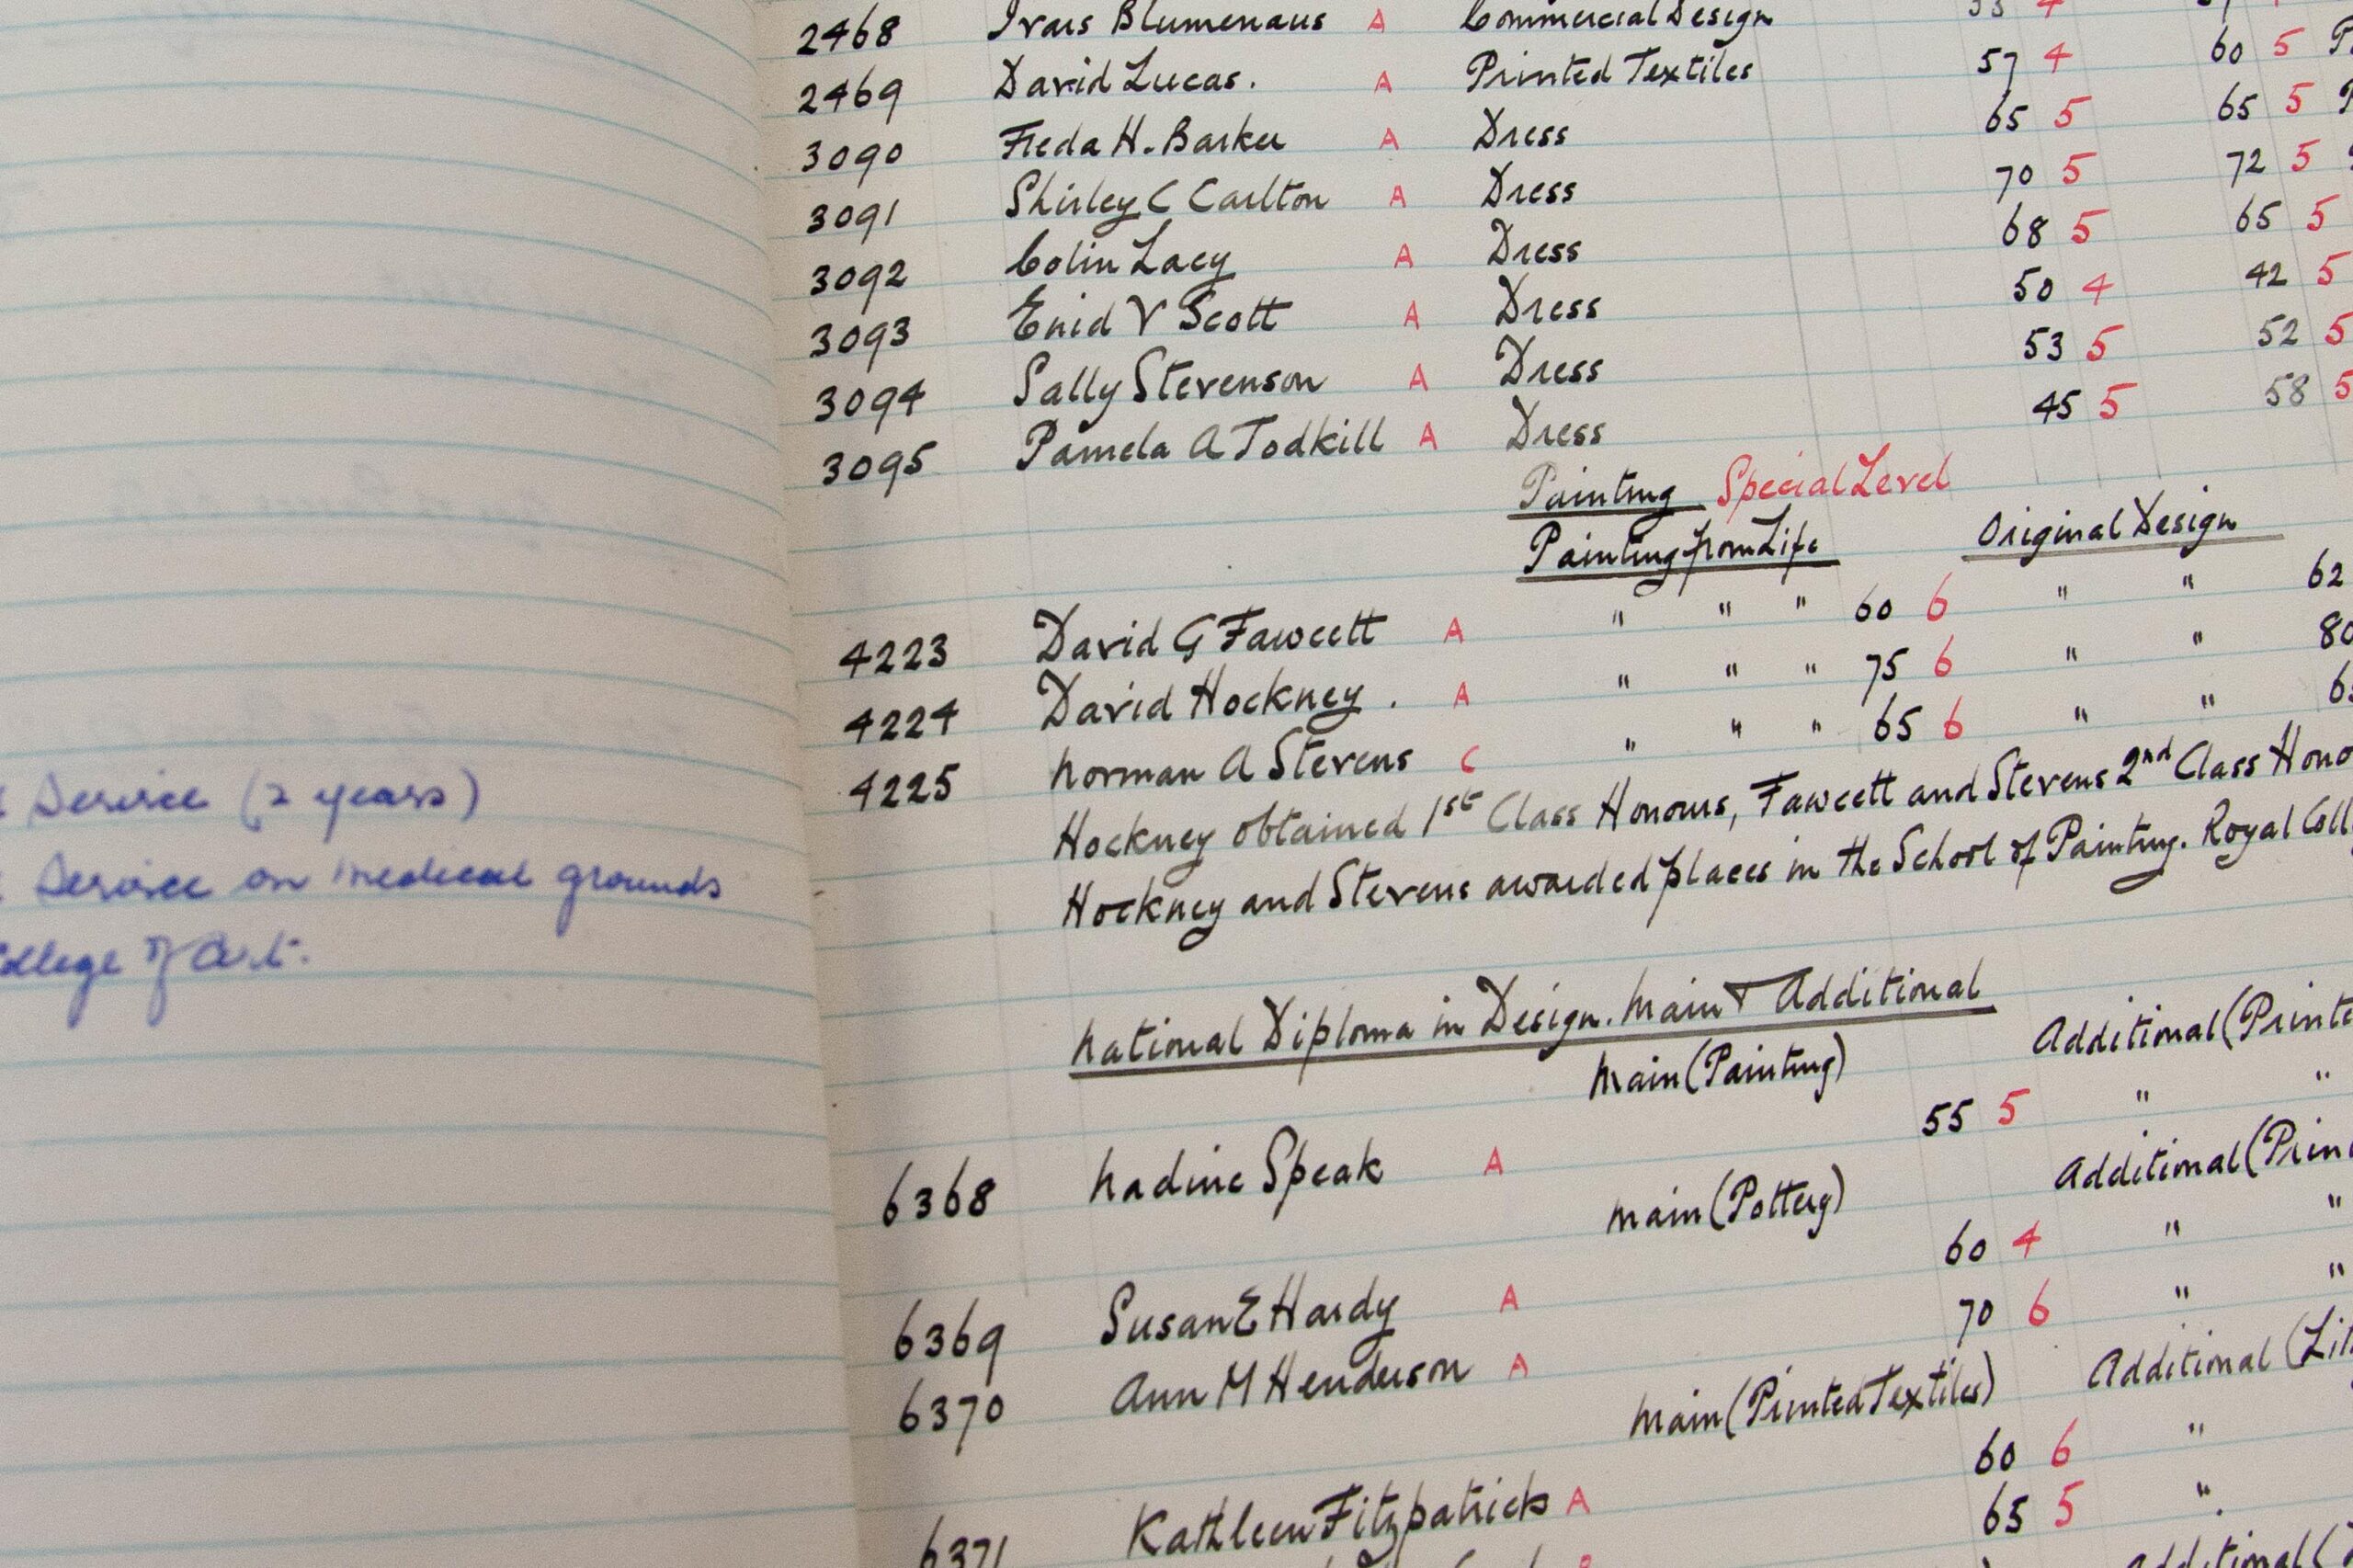 Service (2 years)
Service on medical grounds
College of Art.
2468 Ivars Blumenaus A Commercial Design 4
2469 David Lucas. A Printed Textiles 57 4 60 5
3090 Freda H. Barker A Dress 65 5 65 5
3091 Shirley C Carlton A Dress 70 5 72 5
3092 Colin Lacy A Dress 68 5 65 5
3093 Enid V Scott A Dress 50 4 42 5
3094 Sally Stevenson A Dress 53 5 52 5
3095 Pamela A Todkill A Dress 45 5 58 5
Painting Special Level
Painting from Life Original Design
4223 David G Fawcett A " " " 60 6 " " 62
4224 David Hockney . A " " " 75 6 " " 80
4225 Norman A Stevens C " " " 65 6 " "
Hockney obtained 1st Class Honours, Fawcett and Stevens 2nd Class Hono
Hockney and Stevens awarded places in the School of Painting. Royal Coll
National Diploma in Design. Main & Additional
Main (Painting) Additional (Printe
6368 Nadine Speak A 55 5 " "
Main (Pottery) Additional (Prin
6369 Susan E Hardy A 60 4 " "
6370 Ann M Henderson A 70 6 " "
Main (Printed Textiles) Additional (Lit
6371 Kathleen Fitzpatrick A 60 6 "
65 5 "
Additional (